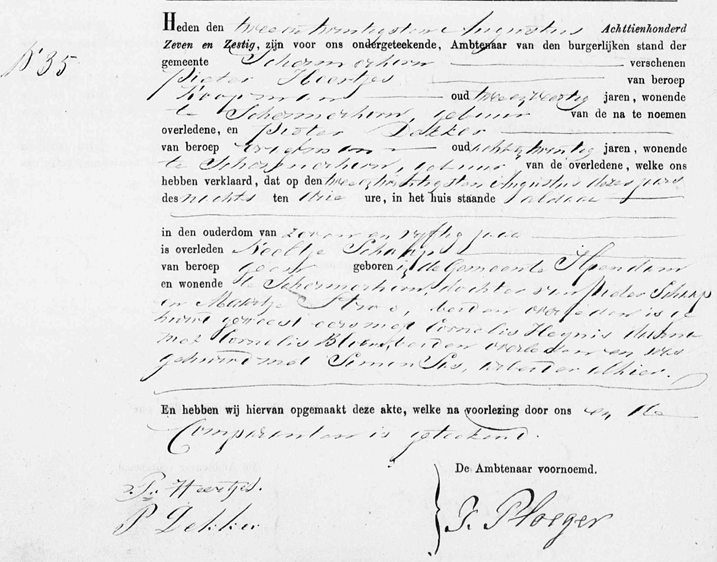 Heden den twee en twintigsten Augustus Achttienhonderd
N° 35
Zeven en Zestig, zijn voor ons ondergeteekende, Ambtenaar van den burgerlijken stand der
gemeente Schermerhorn verschenen
Pieter Heertjes van beroep
Koopman oud twee en veertig jaren, wonende
te Schermerhorn, gebuur van de na te noemen
overledene, en Pieter Dekker
van beroep oud acht en twintig jaren, wonende
te Schermerhorn, gebuur van de overledene, welke ons
hebben verklaard, dat op den twee en twintigsten Augustus dezes jaars
des nachts ten drie ure, in het huis staande aldaar
in den ouderdom van zeven en vijftig jaar
is overleden Neeltje Schaap
van beroep geen geboren in de Gemeente Ilpendam
en wonende te Schermerhorn, dochter van Pieter Schaap
en Maartje Stroo, beiden overleden is ge
huwd geweest eerst met Cornelis Heynis daarna
met Cornelis Blom, beiden overleden en was
gehuwd met Simon Sas, arbeider alhier.
En hebben wij hiervan opgemaakt deze akte, welke na voorlezing door ons en de
Comparanten is geteekend.
De Ambtenaar voornoemd.
P. Heertjes.
P Dekker
J. Ploeger